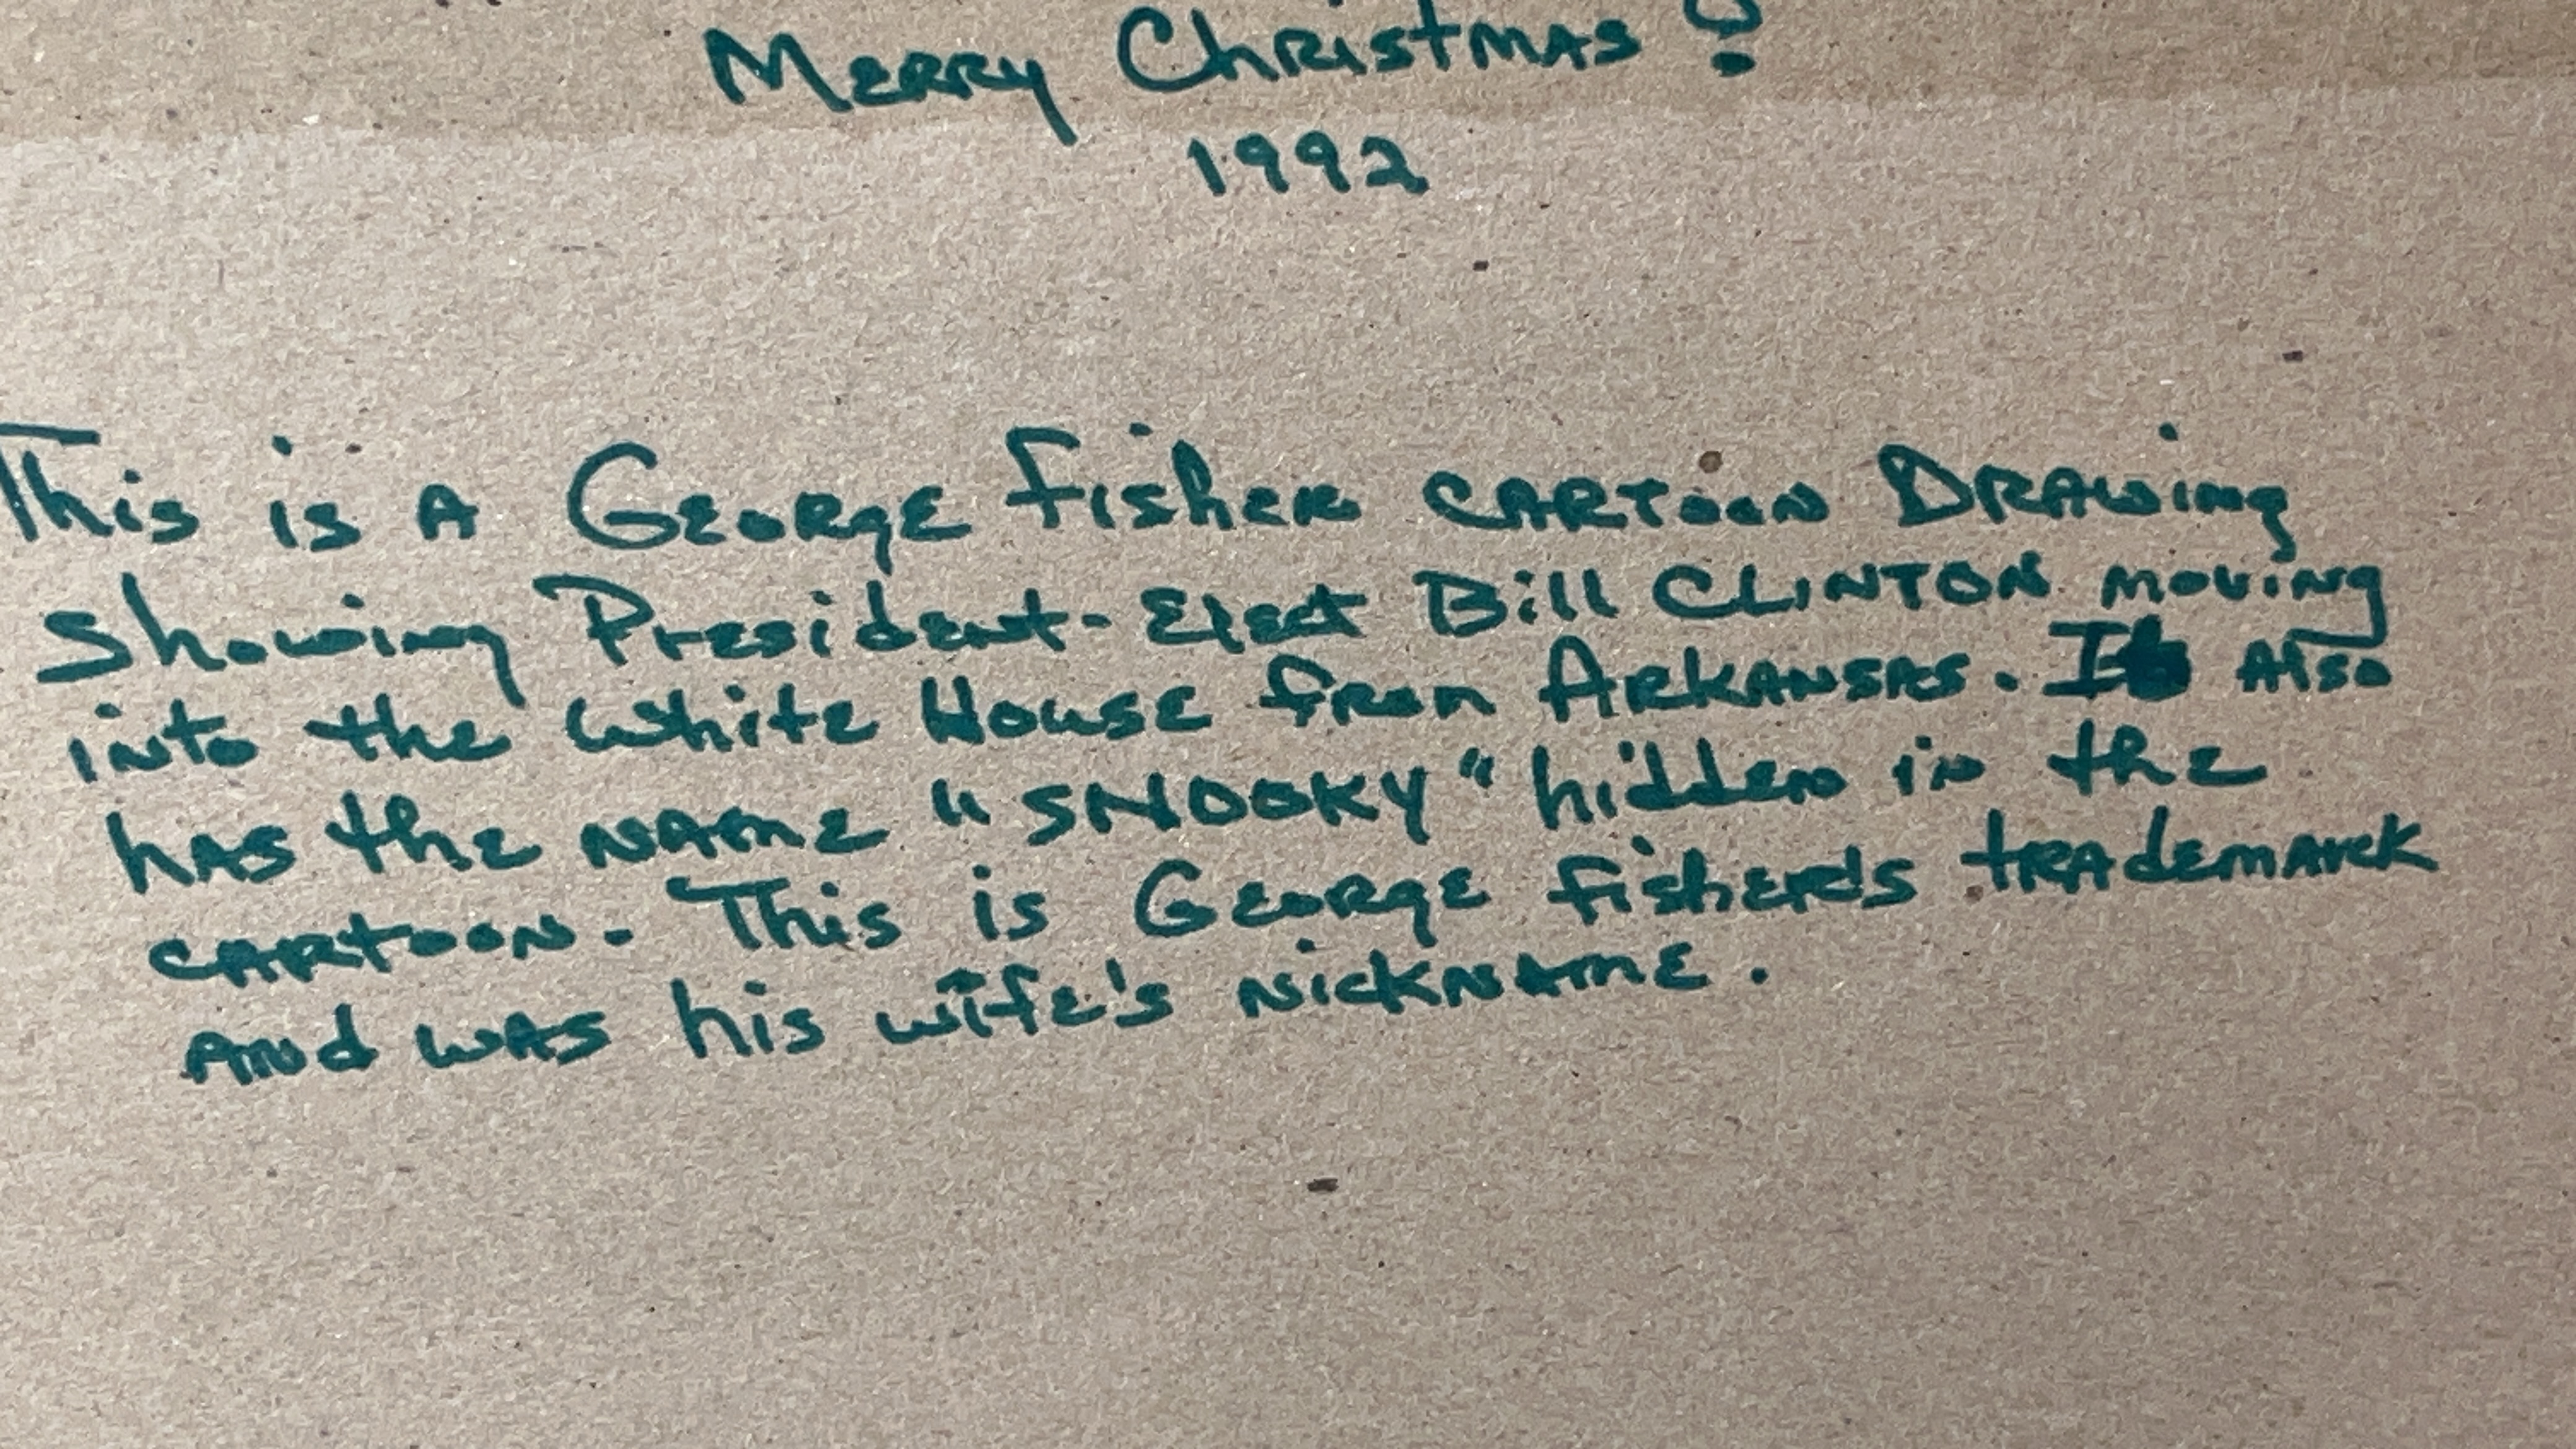 Merry Christmas!
1992
This is A George Fisher cartoon Drawing
showing President-Elect Bill CLINTON moving
into the White House from Arkansas. It Also
has the name "SNOOKY" hidden in the
cartoon. This is George Fisher's trademark
and was his wife's nickname.